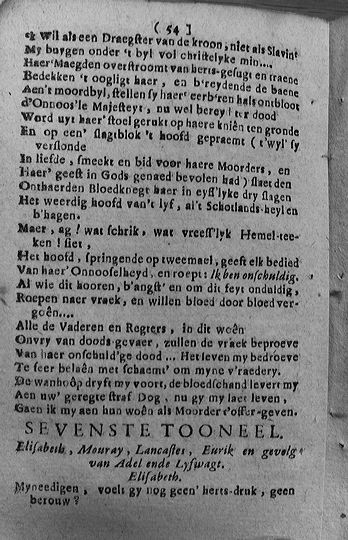 ( 54 )
'k Wil als een Draegster van de kroon, niet als Slavin
My buygen onder 't byl vol christelyke min....
Haer' Maegden overstroomt van herts-gesugt en traene
Bedekken 't oogligt haer, en b'reydende de baene
Aen't moordbyl, stellen sy haer' eerb'ren hals ontbloot
d'Onnoos'le Majesteyt, nu wel bereyt ter dood
Word uyt haer' stoel gerukt op haere kniên ten gronde
En op een' slagtblok 't hoofd gepraemt (t'wyl' sy
verslonde
In liefde, smeekt en bid voor haere Moorders, en
Haer' geest in Gods genaed bevolen had) slaet den
Onthaerden Bloedknegt haer in eyss'lyke dry slagen
Het weerdig hoofd van't lyf, al't Schotlands-heyl en
b'hagen.
Maer, ag! wat schrik, wat vreess'lyk Hemel-tee-
ken! siet,
Het hoofd, springende op tweemael, geeft elk bedied
Van haer' Onnooselheyd, en roept: Ik ben onschuldig.
Al wie dit hooren, b'angst' en om dit feyt onduldig,
Roepen naer vraek, en willen bloed door bloed ver-
goên....
Alle de Vaderen en Regters, in dit woên
Onvry van doods-gevaer, zullen de vraek beproeve
Van haer onschuld'ge dood ... Het leven my bedroeve
Te seer belaên met schaemt' om myne v'raedery.
De wanhôp dryft my voort, de bloedschand levert my
Aen uw' geregte straf Dog, nu gy my laet leven,
Gaen ik my aen hun woên als Moorder t'offer-geven.
SEVENSTE TOONEEL.
Elisabeth, Mouray, Lancaster, Eurik en gevolg
van Adel ende Lyfwagt.
Elisabeth.
Myneedigen, voelt gy nog geen' herts-druk, geen
berouw?